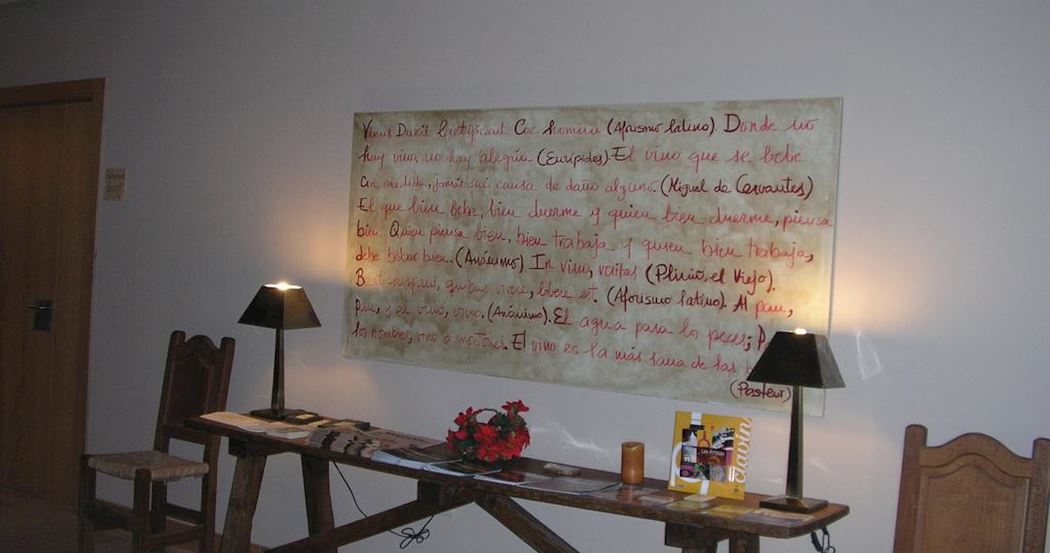 Vinus Dueit letificant Coc homini (Aforismo latino). Donde no
hay vino, no hay alegria (Eurípides). El vino que se bebe
con medida, jamás fué causa de daño alguno. (Miguel de Cervantes)
El que bien bebe, bien duerme y quien bien duerme, piensa
bien. Quien piensa bien, bien trabaja y quien bien trabaja,
debe beber bien. (Anónimo) In vino, veritas (Plinio, el Viejo).
vivere, bibere est. (Aforismo latino). Al pan,
pan, y al vino, vino. (Anónimo). El agua para los peces; P
los hombres, vino a montones. El vino es la más sana de las b
(Pasteur)
clavin